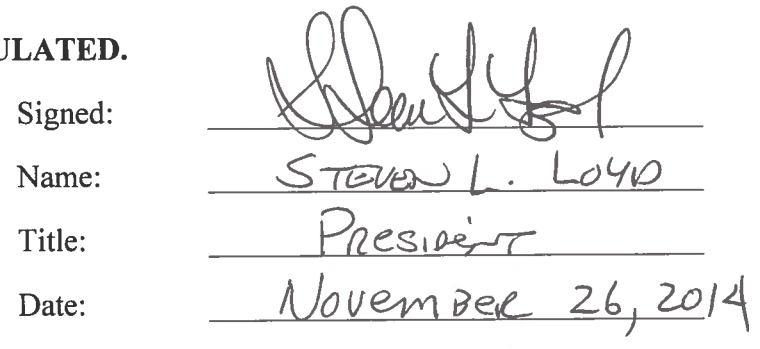 ULATED.
Signed: Steven L Loyd
Name: STEVEN L. LOYD
Title: PRESIDENT
Date: NOVEMBER 26, 2014